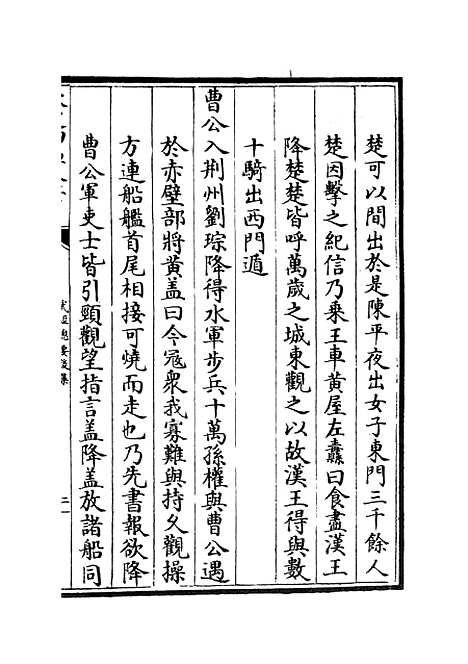 楚可以間出於是陳平夜出女子東門三千餘人
楚因擊之紀信乃乗王車黄屋左纛曰食盡漢王
降楚楚皆呼萬歲之城東觀之以故漢王得與數
十騎出西門遁
曹公入荆州劉琮降得水軍步兵十萬孫權與曹公遇
於赤壁部將黄盖曰今冦衆我寡難與持久觀操
方連船艦首尾相接可燒而走也乃先書報欲降
曹公軍吏士皆引頸觀望指言盖降盖放諸船同
武經總要後集